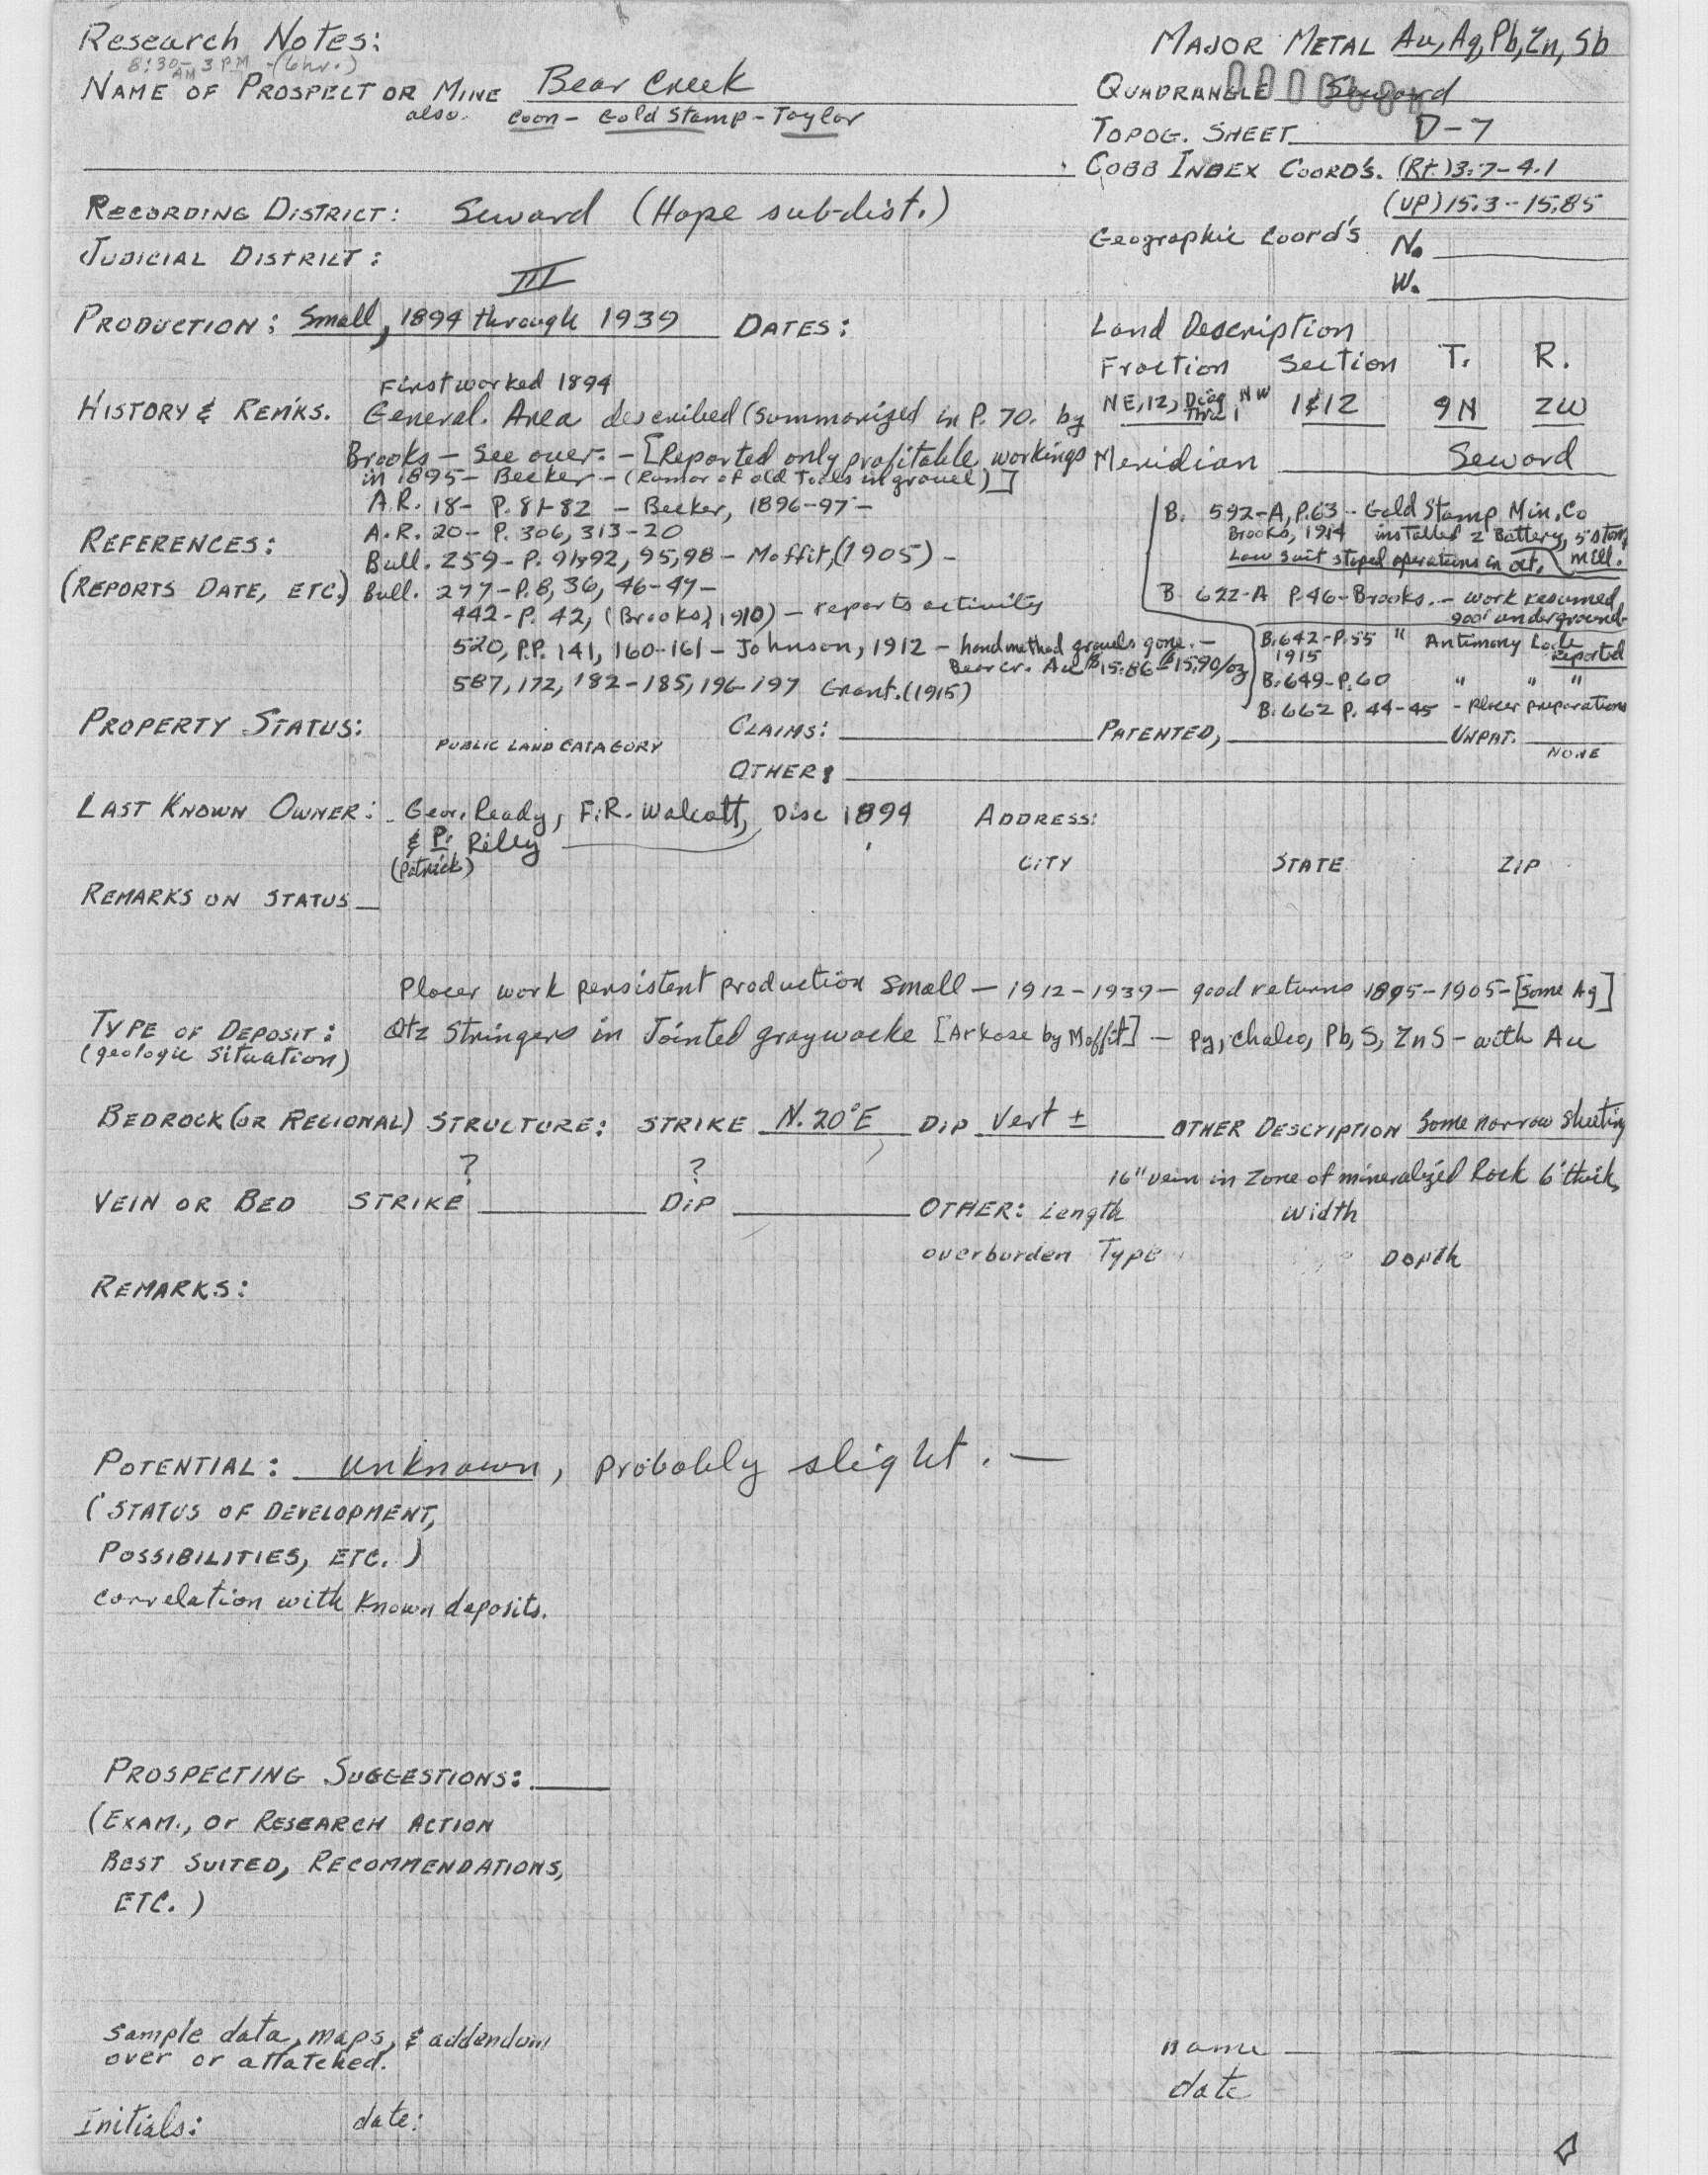 Research Notes:
8:30- 3 PM -(6hr.)
AM
MAJOR METAL Au, Ag, Pb, Zn, Sb
NAME OF PROSPECT OR MINE Bear Creek
also. Coon - Gold Stamp - Taylor
QUADRANGLE Seward
TOPOG. SHEET D-7
COBB INDEX COORD'S. (Rt.) 3.7-4.1
(UP) 15.3-15.85
RECORDING DISTRICT: Seward (Hope sub-dist.)
Geographic Coord's N.
W.
JUDICIAL DISTRICT:
III
PRODUCTION: Small, 1894 through 1939 DATES:
Land Description
Fraction Section T. R.
NE, 12, Diag NW 1 & 12 9N 2W
Thru 1
Meridian Seward
First worked 1894
HISTORY & REMKS. General. Area described (summarized in P. 70. by
Brooks - See over. - [Reported only profitable workings
in 1895 - Becker - (Rumor of old Tools in gravel)]
A.R. 18- P. 81-82 - Becker, 1896-97 -
REFERENCES: A.R. 20- P. 306, 313-20
Bull. 259- P. 91-92, 95, 98 - Moffit, (1905) -
(REPORTS DATE, ETC.) Bull. 277- P. 8, 36, 46-47 -
442- P. 42, (Brooks, 1910) - reports activity
520, P.P. 141, 160-161 - Johnson, 1912 - hand method gravels gone. -
Bear cr. Au $15.86-$15.90/oz
587, 172, 182-185, 196-197 Grant. (1915)
B. 592-A, P. 63 - Gold Stamp Min. Co
Brooks, 1914 installed 2 Battery, 5 stamp
Law suit stoped operations in oct. mill.
B 622-A P. 46 - Brooks. - work resumed
900' underground
B. 642- P. 55 " Antimony Lode
1915 reported
B. 649- P. 60 " " "
B. 662 P. 44-45 - placer preparations
PROPERTY STATUS:
PUBLIC LAND CATAGORY
CLAIMS: PATENTED, UNPAT.
NONE
OTHER:
LAST KNOWN OWNER: Geor. Ready, F.R. Walcott, Disc 1894 ADDRESS:
& P. Rilly
(Patrick)
CITY STATE ZIP
REMARKS ON STATUS
Placer work persistent production small - 1912-1939 - good returns 1895-1905 - [some Ag]
TYPE OF DEPOSIT: Qtz Stringers in Jointed graywacke [Arkose by Moffit] - Py, chalco, Pb, S, ZnS - with Au
(geologic situation)
BEDROCK (OR REGIONAL) STRUCTURE: STRIKE N. 20°E DIP Vert ± OTHER DESCRIPTION Some narrow sheeting
? ?
16" vein in Zone of mineralized Rock 6' thick
VEIN OR BED STRIKE DIP OTHER: Length Width
overburden Type Depth
REMARKS:
POTENTIAL: unknown, probably slight. -
(STATUS OF DEVELOPMENT,
POSSIBILITIES, ETC.)
correlation with known deposits.
PROSPECTING SUGGESTIONS:
(EXAM., Or RESEARCH ACTION
BEST SUITED, RECOMMENDATIONS,
ETC.)
sample data, maps, & addendum
over or attatched.
name
date
Initials: date: